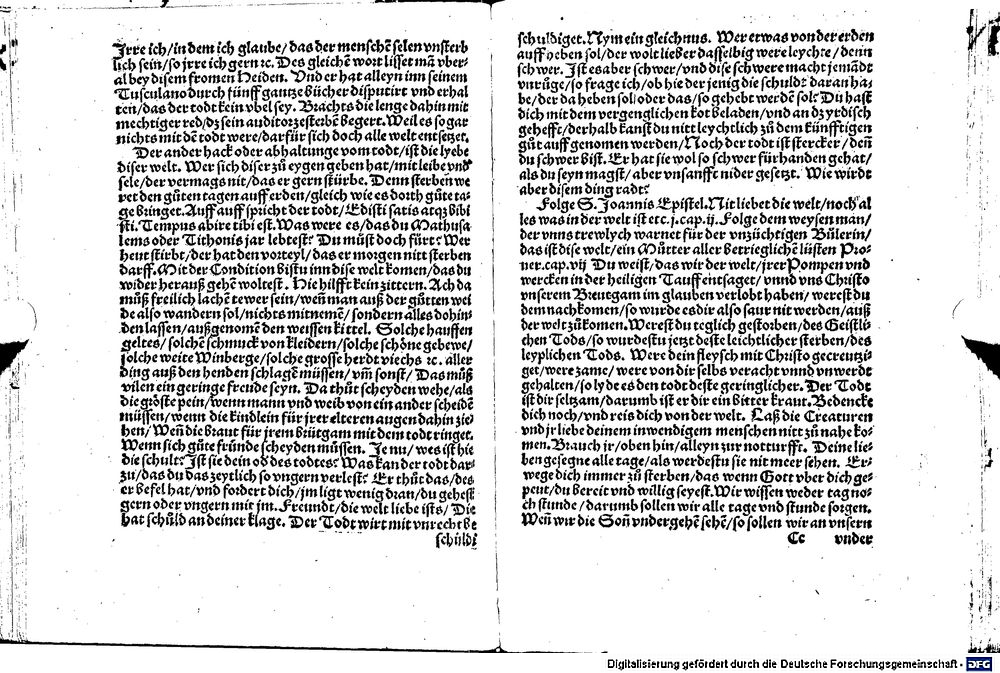 Irre ich/in dem ich glaube/das der menschē selen vnsterb
lich sein/so jrre ich gern ꝛc. Des gleichē wort lisset mā vber-
al bey disem fromen Heiden. Vnd er hat alleyn inn seinem
Tusculano durch fünff gantze bücher disputirt vnd erhal
ten/das der todt kein vbel sey. Brachts die lenge dahin mit
mechtiger red/dz sein auditorzesterbē begert. Weil es so gar
nichts mit dē todt were/darfür sich doch alle welt entsetzet.
Der ander hack oder abhaltunge vom todt/ist die lyebe
diser welt. Wer sich diser zů eygen geben hat/mit leibe vnd
sele/der vermags nit/das er gern stürbe. Denn sterben we
ret den gůten tagen auff erden/gleich wie es dorth gůte ta-
ge bringet. Auff auff spricht der todt/Edisti satis atqꝫ bibi
sti. Tempus abire tibi est. Was were es/das du Mathusa
lems oder Tithonis jar lebtest? Du můst doch fürt: Wer
heut stirbt/der hat den vorteyl/das er morgen nit sterben
darff. Mit der Condition bistu inn dise welt komen/das du
wider herauß gehē woltest. Hie hilfft kein zittern. Ach da
můß freilich lachē tewer sein/weñ man auß der gůtten wei
de also wandern sol/nichts mitnemē/sondern alles dohin-
den lassen/außgenomē den weissen kittel. Solche hauffen
geltes/solchē schmuck von kleidern/solche schöne gebewe/
solche weite Winberge/solche grosse herdt viechs ꝛc. aller
ding auß den henden schlagē müssen/vm̄ sonst/Das můß
vilen ein geringe freude seyn. Da thůt scheyden wehe/als
die gröste pein/wenn mann vnd weib von ein ander scheidē
müssen/wenn die kindlein für jrer elteren augen dahin zie-
hen/Weñ die braut für jrem brütgam mit dem todt ringet.
Wenn sich gůte fründe scheyden müssen. Je nu/wes ist hie
die schult? Ist sie dein oď des todtes? Was kan der todt dar-
zu/das du das zeytlich so vngern verlest? Er thůt das/des
er befel hat/vnd fordert dich/jm ligt wenig dran/du gehest
gern oder vngern mit jm. Freundt/die welt liebe ists/Die
hat schuld an deiner klage. Der Todt wirt mit vnrecht be
schuldi
schuldiget. Nym ein gleichnus. Wer etwas von der erden
auff heben sol/der wolt lieber dasselbig were leychte/denn
schwer. Ist es aber schwer/vnd dise schwere macht jemādt
vnrüge/so frage ich/ob hie der jenig die schuldt daran ha-
be/der da heben sol/oder das/so gehebt werdē sol? Du hast
dich mit dem vergenglichen kot beladen/vnd an dz yrdisch
gehefft/derhalb kanst du nitt leychtlich zů dem künfftigen
gůt auff genomen werden/Noch der todt ist stercker/deñ
du schwer bist. Er hat sie wol so schwer fürhanden gehat/
als du seyn magst/aber vnsanfft nider gesetzt. Wie wirdt
aber disem ding radt?
Folge S. Joannis Epistel. Nit liebet die welt/noch al
les was in der welt ist etc. j. cap. ij. Folge dem weysen man/
der vnns trewlych warnet für der vnzüchtigen Bülerin/
das ist dise welt/ein Mütter aller betrieglichē lüsten Pro-
uer. cap. vij Du weist/das wir der welt/jrer Pompen vnd
wercken in der heiligen Tauff entsaget/vnnd vns Christo
vnserem Breutgam im glauben verlobt haben/werest du
dem nachkomen/so wurde es dir also saur nit werden/auß
der welt zůkomen. Werest du teglich gestorben/des Geistli-
chen Tods/so wurdestu jetzt deste leichtlicher sterben/des
leyplichen Tods. Were dein fleysch mit Christo gecreutzi-
get/were zame/were von dir selbs veracht vnnd vnwerdt
gehalten/so lyde es den todt deste geringlicher. Der Todt
ist dir seltzam/darumb ist er dir ein bitter kraut. Bedencke
dich noch/vnd reis dich von der welt. Laß die Creaturen
vnd jr liebe deinem inwendigem menschen nitt zů nahe ko-
men. Brauch jr/oben hin/alleyn zur notturfft. Deine lie-
ben gesegne alle tage/als werdestu sie nit meer sehen. Er-
wege dich immer zů sterben/das wenn Gott vber dich ge-
peut/du bereit vnd willig seyest. Wir wissen weder tag no-
ch stunde/darumb sollen wir alle tage vnd stunde sorgen.
Weñ wir die Soñ vndergehē sehē/so sollen wir an vnsern
Cc vnder
Digitalisierung gefördert durch die Deutsche Forschungsgemeinschaft - DFG